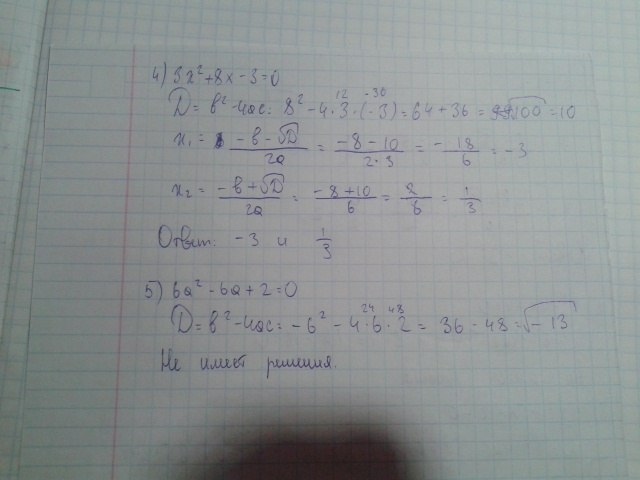 4) 3x²+8x-3=0
12 -36
D = b²-4ac = 8²-4·3·(-3) = 64+36 = √100 = 10
x₁ = (-b-√D)/2a = (-8-10)/(2·3) = -18/6 = -3
x₂ = (-b+√D)/2a = (-8+10)/6 = 2/6 = 1/3
Ответ: -3 и 1/3
5) 6a²-6a+2=0
24 48
D = b²-4ac = -6²-4·6·2 = 36-48 = √-13
Не имеет решения.